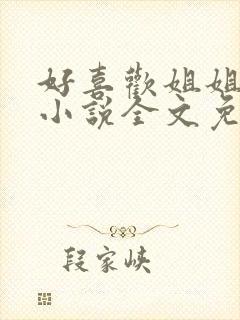 好喜歡姐姐
小說全文免
段家峽